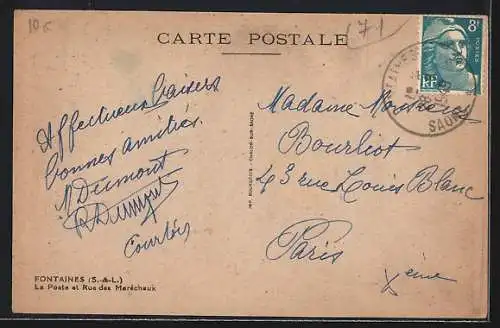 10 f
(71)
CARTE POSTALE
8f
POSTES
RF
FONTAINES
SAONE
Affectueux baisers
bonnes amitiés.
Dumont
R Dumont
Courtois
Madame Monsieur
Bourliot
43 rue Louis Blanc
Paris
Xème
IMP. BOURGEOIS - CHALON-SUR-SAONE
FONTAINES (S.-&-L.)
La Poste et Rue des Maréchaux